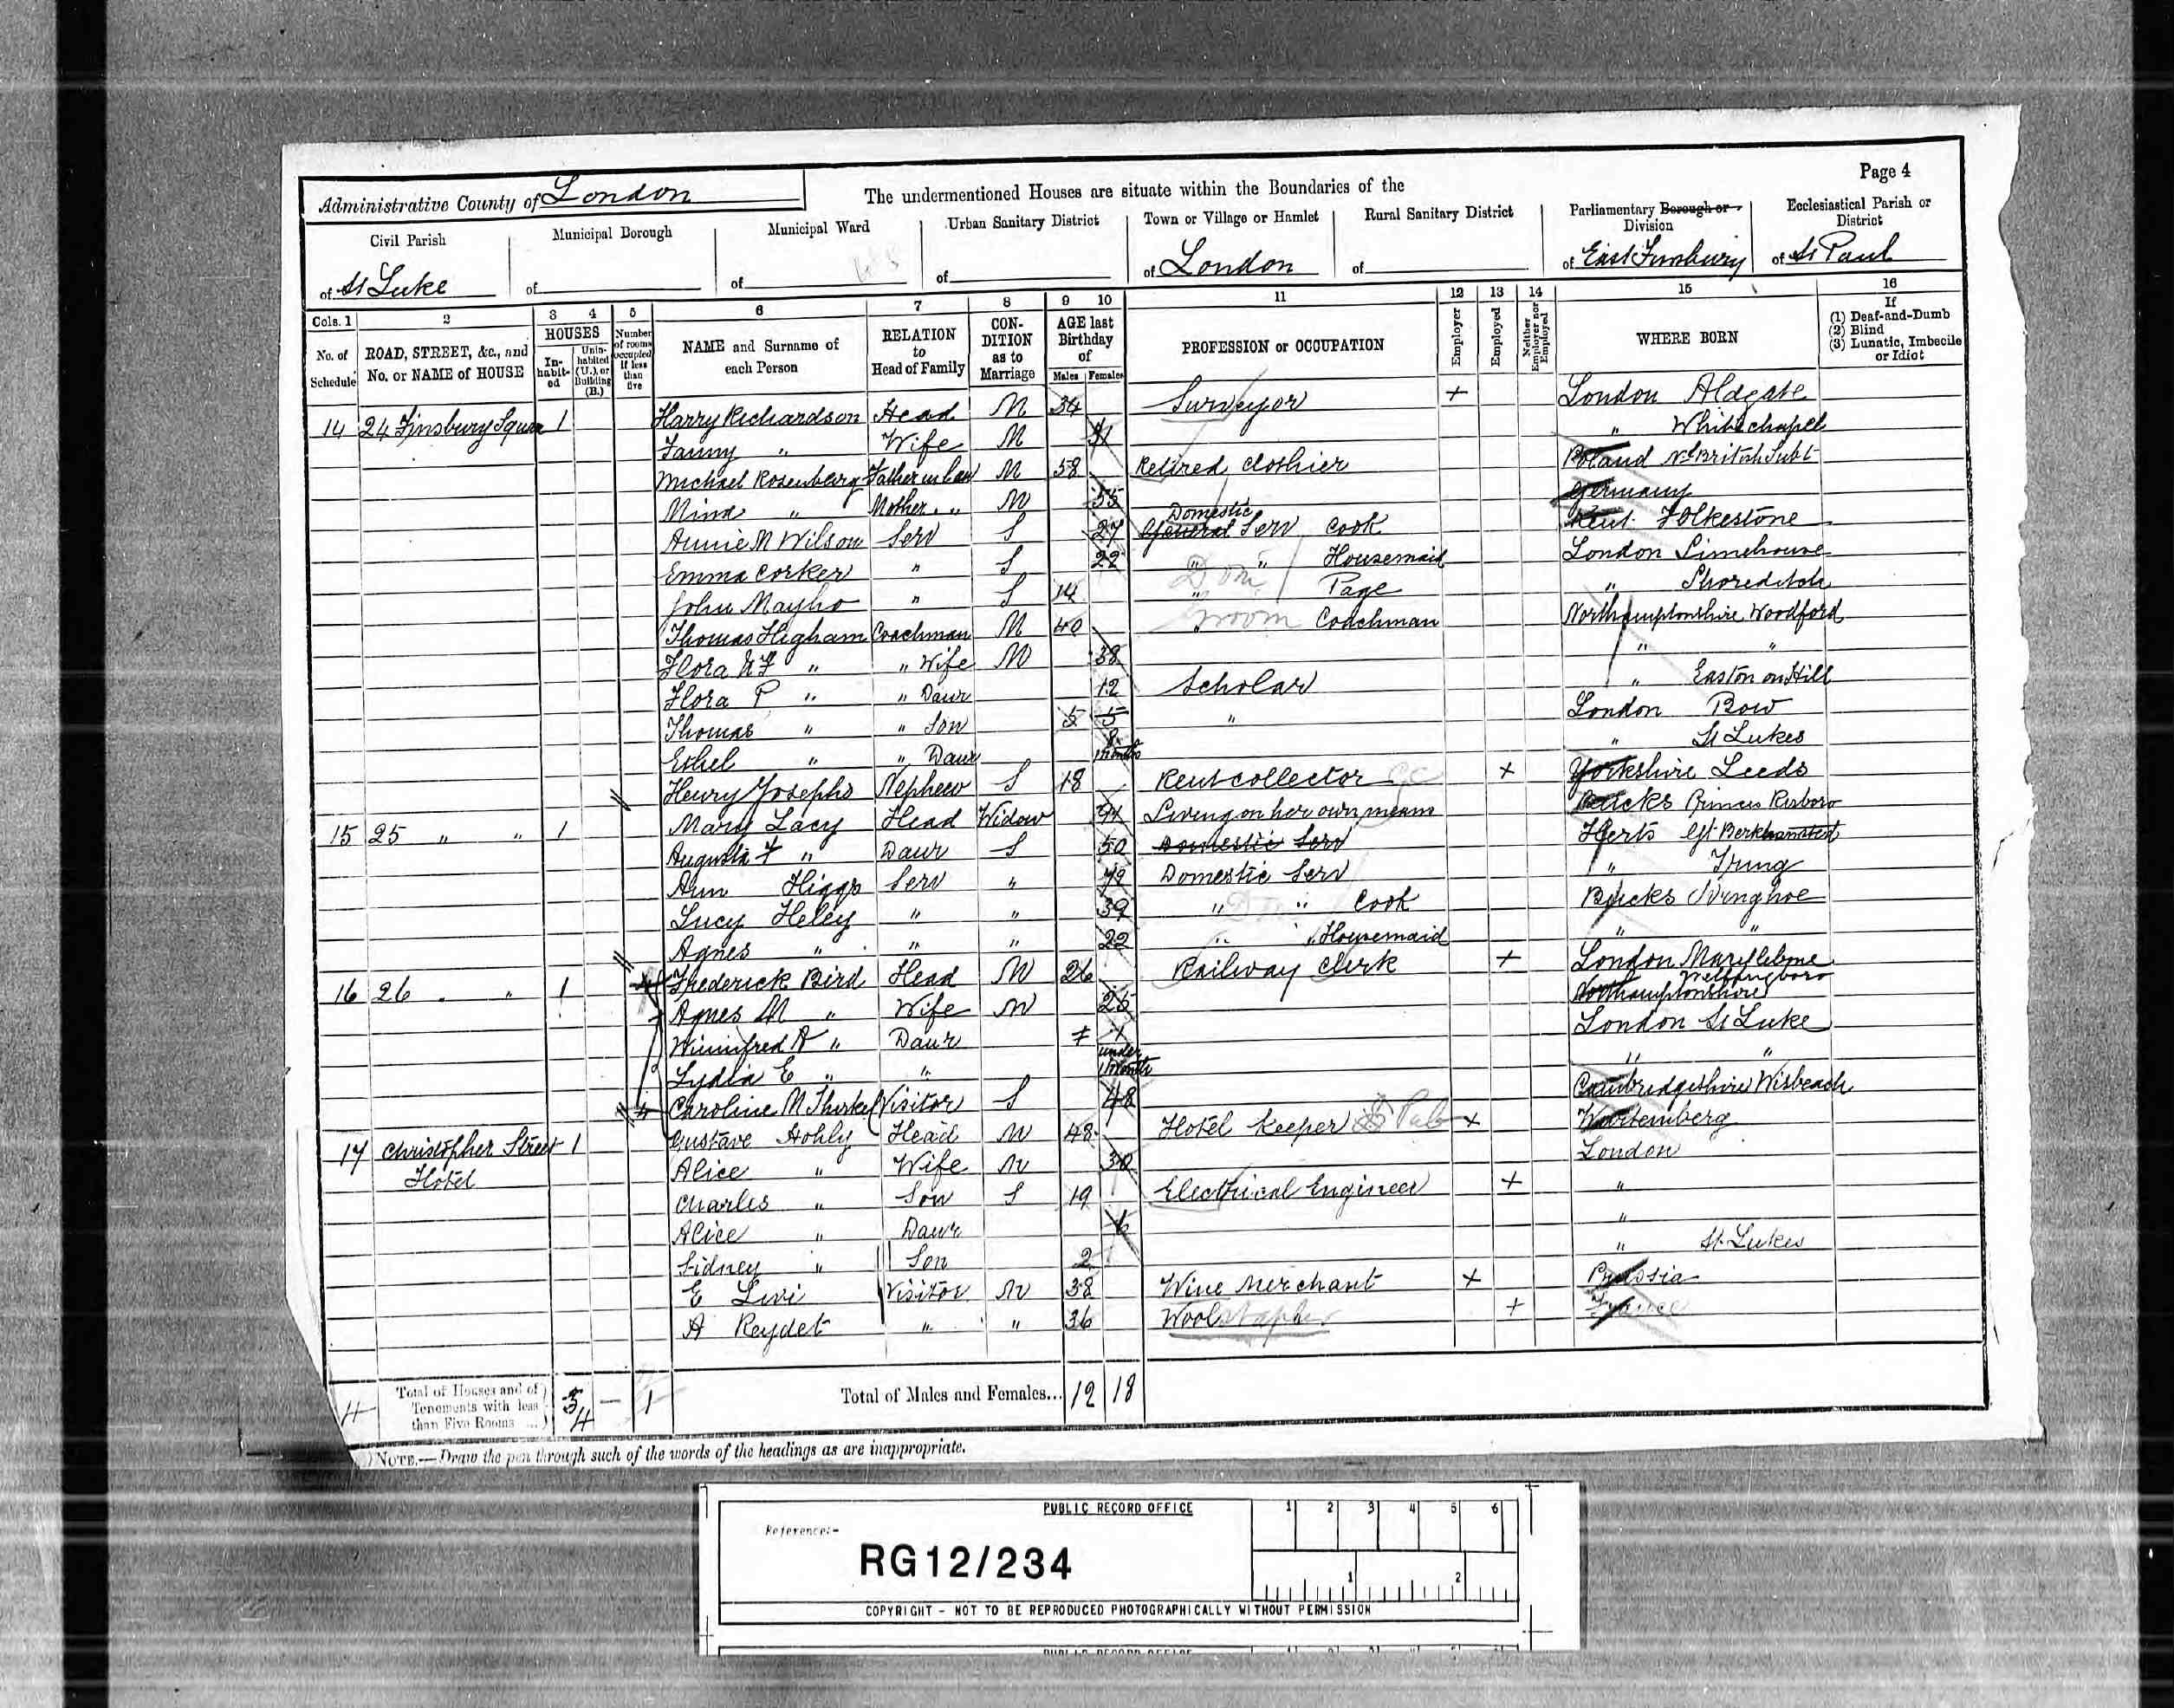 Page 4
Administrative County of London
The undermentioned Houses are situate within the Boundaries of the
Civil Parish of St Luke
Municipal Borough of
Municipal Ward of
Urban Sanitary District of
Town or Village or Hamlet of London
Rural Sanitary District of
Parliamentary Borough or Division of East Finsbury
Ecclesiastical Parish or District of St Paul
Cols. 1 2 3 4 5 6 7 8 9 10 11 12 13 14 15 16
No. of Schedule
ROAD, STREET, &c., and No. or NAME of HOUSE
HOUSES
In-habit-ed
Unin-habited (U.), or Building (B.)
Number of rooms occupied if less than five
NAME and Surname of each Person
RELATION to Head of Family
CON-DITION as to Marriage
AGE last Birthday of
Males Females
PROFESSION or OCCUPATION
Employer
Employed
Neither Employer nor Employed
WHERE BORN
If (1) Deaf-and-Dumb (2) Blind (3) Lunatic, Imbecile or Idiot
14 24 Finsbury Square 1 Harry Richardson Head M 34 Surveyor + London Aldgate
Fanny " Wife M " Whitechapel
Michael Rosenberg Father in law M 58 Retired Clothier Poland British Subt
Mina " Mother " " M 55 Germany
Annie M Wilson Serv S 27 General Domestic Serv Cook Kent Folkestone
Emma Corker " S 22 " " Housemaid London Limehouse
John Mayho " S 14 " Dom Page " Shoreditch
Thomas Higham Coachman M 40 Groom Coachman Northamptonshire Woodford
Flora " " Wife M 38 " "
Flora P " " Daur 12 Scholar " Easton on Hill
Thomas " " Son 5 5 " London Bow
Ethel " " Daur 8 months " St Lukes
Henry Josephs Nephew S 18 Rent collector CC + Yorkshire Leeds
15 25 " " 1 Mary Lacy Head Widow 91 Living on her own means Bucks Princes Risboro
Augusta F " Daur S 50 Domestic Serv Herts Gt Berkhamsted
Ann Higgs Serv " 72 Domestic Serv " Tring
Lucy Heley " " 39 " Dom " Cook Bucks Ivinghoe
Agnes " " " 22 " " Housemaid " "
16 26 " " 1 4 Frederick Bird Head M 26 Railway Clerk + London Marylebone
Agnes M " Wife M 25 Northamptonshire Wellingboro
Winnifred A " Daur London St Luke
Lydia E " " under 1 Month " "
4 Caroline M Visitor S 48 Cambridgeshire Wisbeach
17 Christopher Street Hotel 1 Gustave Hohly Head M 48 Hotel Keeper Pub + Wurtemberg
Alice " Wife M 30 London
Charles " Son S 19 Electrical Engineer + "
Alice " Daur 6 "
Sidney " Son 2 " St Lukes
E Levi Visitor M 38 Wine Merchant + Prussia
A Reydet " " 36 Woolstapler + France
4 Total of Houses and of Tenements with less than Five Rooms ... 3 4 — 1 Total of Males and Females... 12 18
NOTE.—Draw the pen through such of the words of the headings as are inappropriate.
PUBLIC RECORD OFFICE
1 2 3 4 5 6
Reference:-
RG12/234
1 2
COPYRIGHT - NOT TO BE REPRODUCED PHOTOGRAPHICALLY WITHOUT PERMISSION
PUBLIC RECORD OFFICE